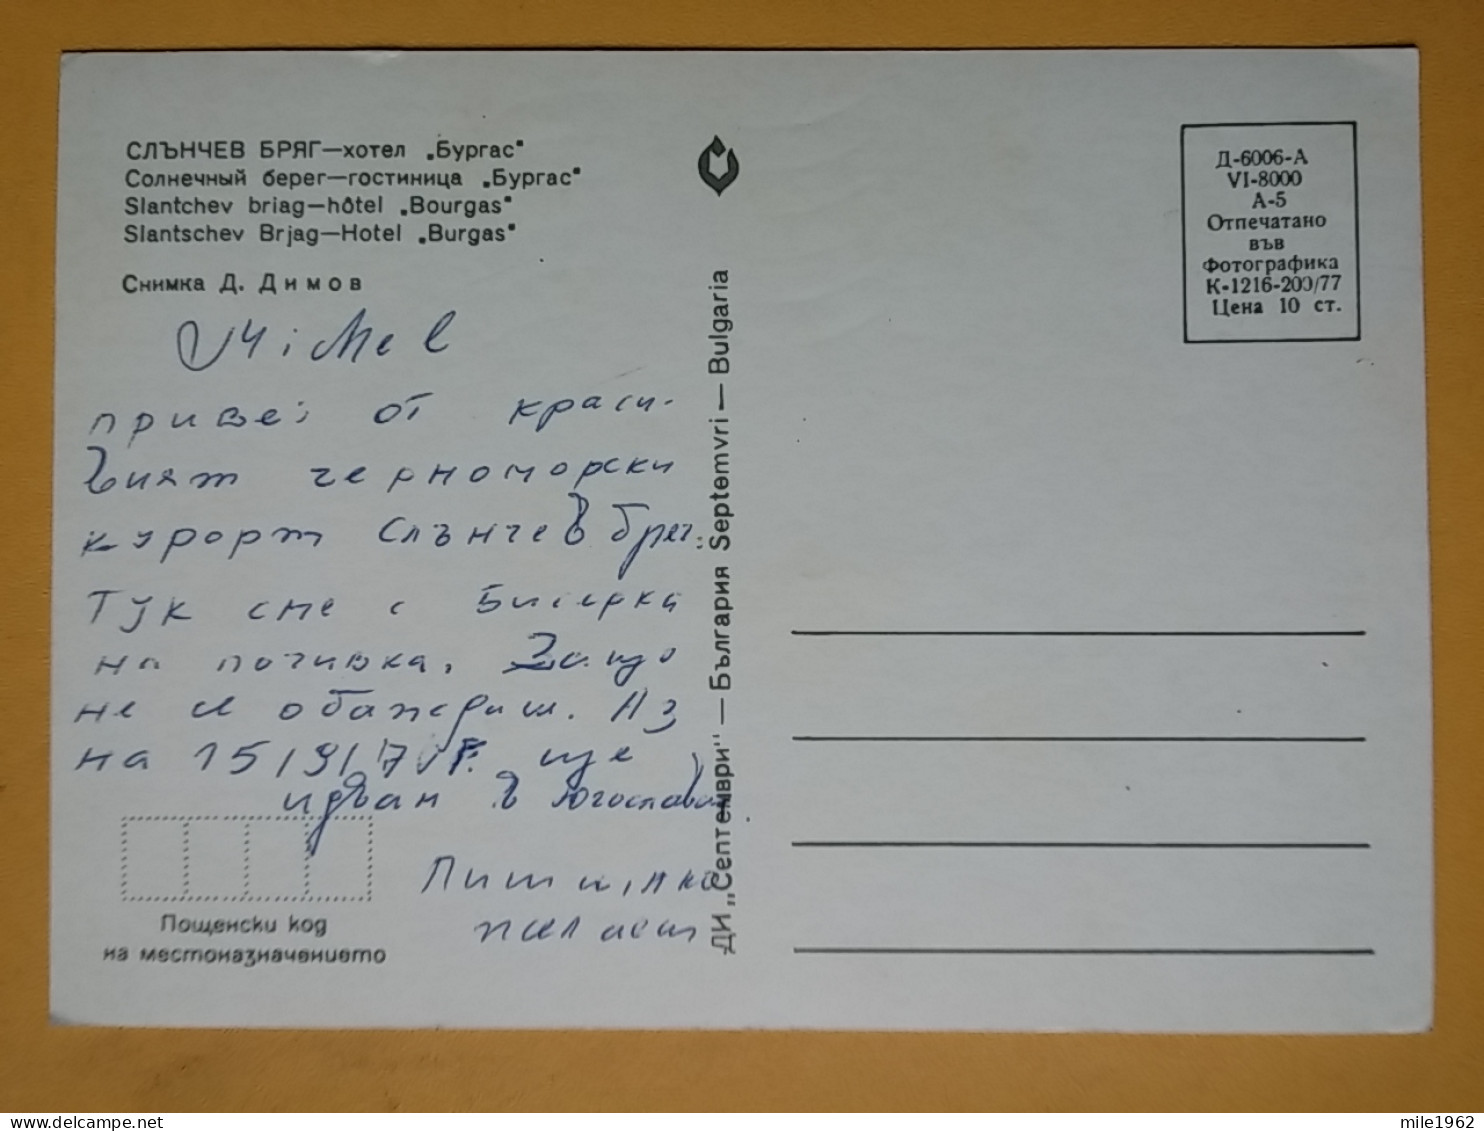 СЛЪНЧЕВ БРЯГ—хотел „Бургас"
Солнечный берег—гостиница „Бургас"
Slantchev briag—hôtel „Bourgas"
Slantschev Brjag—Hotel „Burgas"
Снимка Д. Димов
привет от краси-
вият черноморски
курорт Слънчев бряг.
Тук сме с Бисерка
на почивка. Защо
не се обаждаш. Аз
на 15/9/7 ще
идвам в Югославия
Пощенски код
на местоназначението
ДИ „Септември" — България Septemvri — Bulgaria
Д-6006-А
VI-8000
А-5
Отпечатано
във
Фотографика
К-1216-200/77
Цена 10 ст.
mile1962